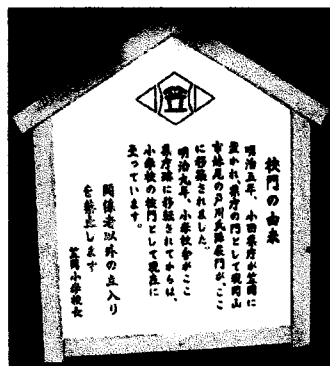 笠
校門の由来
明治五年、小田県庁が笠岡に
置かれ県庁の門として現岡山
市妹尾の戸川氏陣屋門が、ここ
に移築されました。
明治九年、小学校舎がここ
県庁跡に移転されてからは、
小学校の校門として現在に
至っています。
関係者以外の立入り
を禁止します
笠岡小学校長